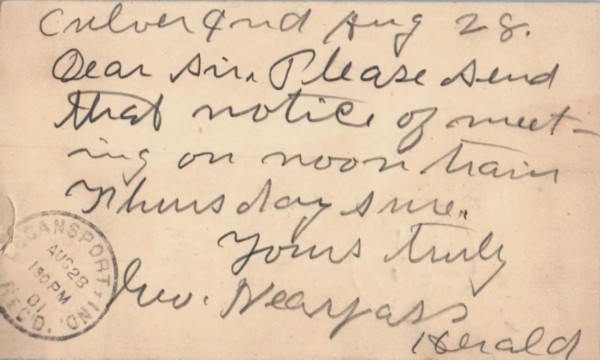 Culver Ind Aug 28.
Dear Sir. Please send
that notice of meet-
ing on noon train
Thursday sure.
Yours truly
Geo. Nearpass
Herald
LOGANSPORT, IND.
AUG 28
1 30 PM
01
REC'D.